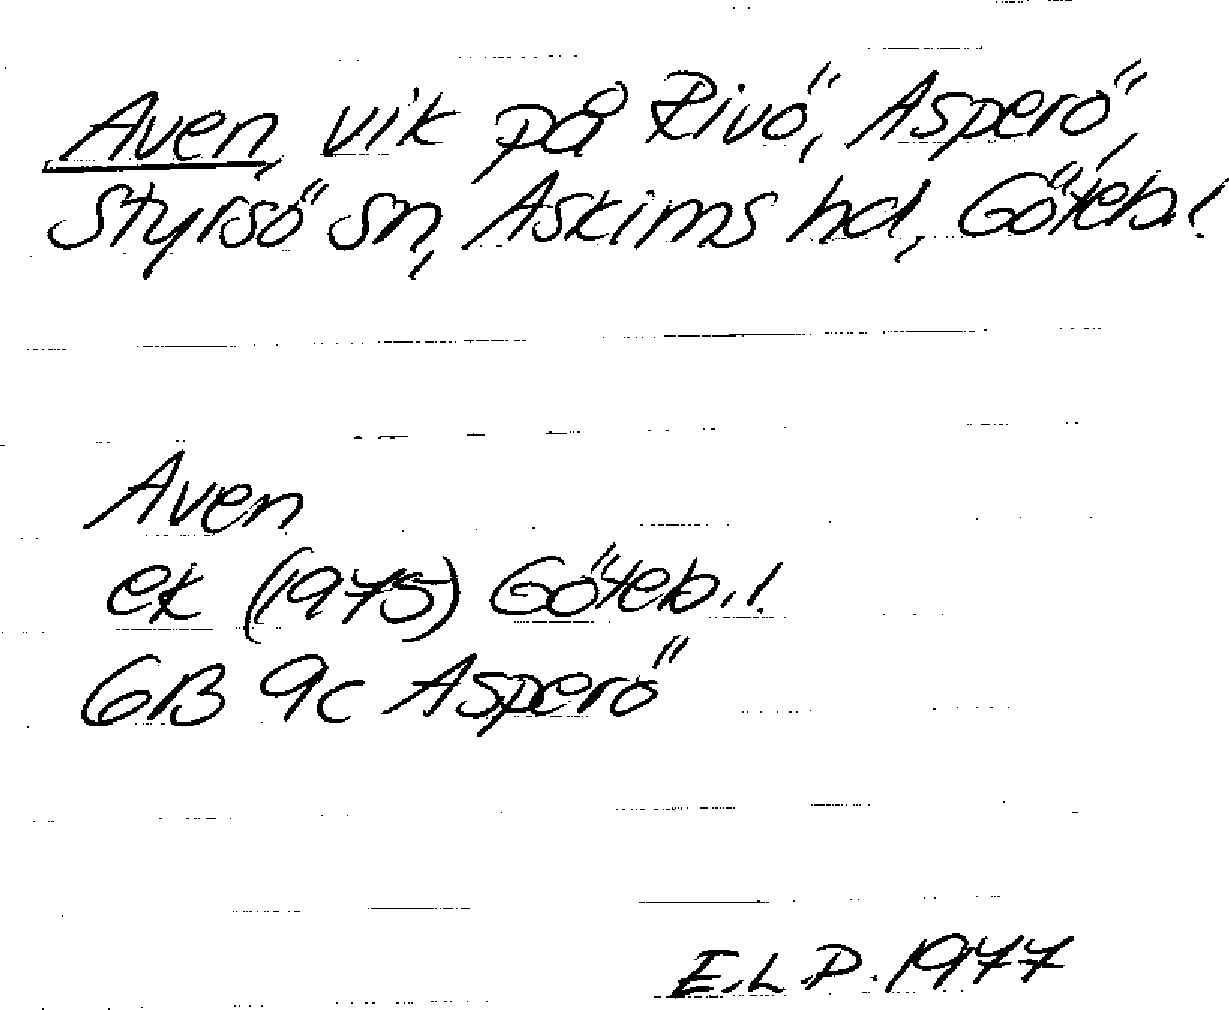 Aven, vik på Rivö, Asperö,
Styrsö sn, Askims hd, Göteb.l.
Aven
ek (1975) Göteb.l.
6B 9c Asperö
E.L.P. 1977